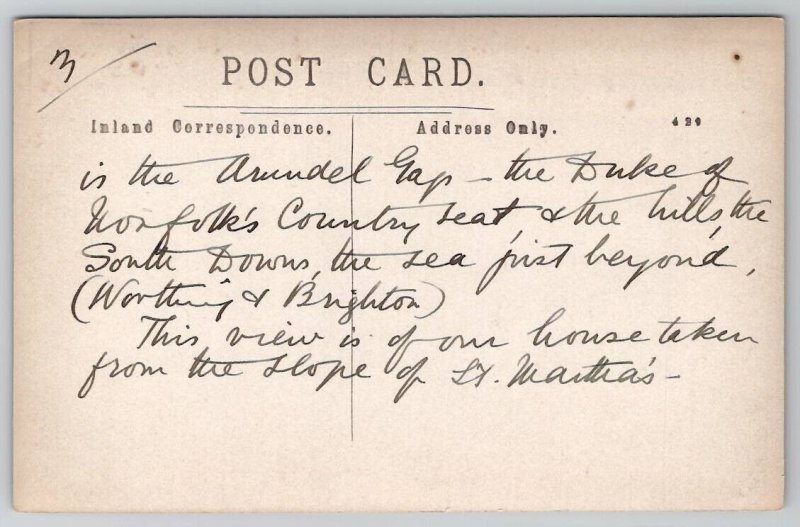 3
POST CARD.
Inland Correspondence. Address Only. 420
is the Arundel Gap – the Duke of
Norfolk's Country seat, & the hills, the
South Downs, the sea just beyond,
(Worthing & Brighton)
This view is of our house taken
from the slope of St. Martha's –